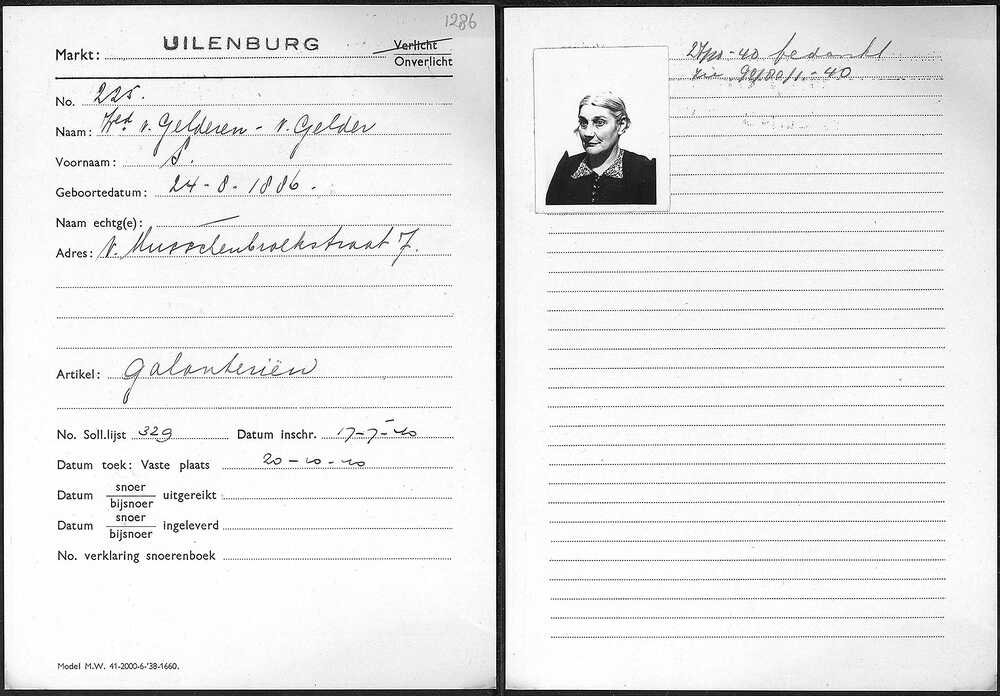 1286
Markt: UILENBURG Verlicht
Onverlicht
No. 225.
Naam: Wed v. Gelderen - v. Gelder
Voornaam: S.
Geboortedatum: 24-8-1886.
Naam echtg(e): —
Adres: v. Musschenbroekstraat 7.
Artikel: galanteriën
No. Soll.lijst 329 Datum inschr. 17-7-40
Datum toek: Vaste plaats 20-10-40
Datum snoer/bijsnoer uitgereikt
Datum snoer/bijsnoer ingeleverd
No. verklaring snoerenboek
Model M.W. 41-2000-6-'38-1660.
-40 bedankt
zie -40